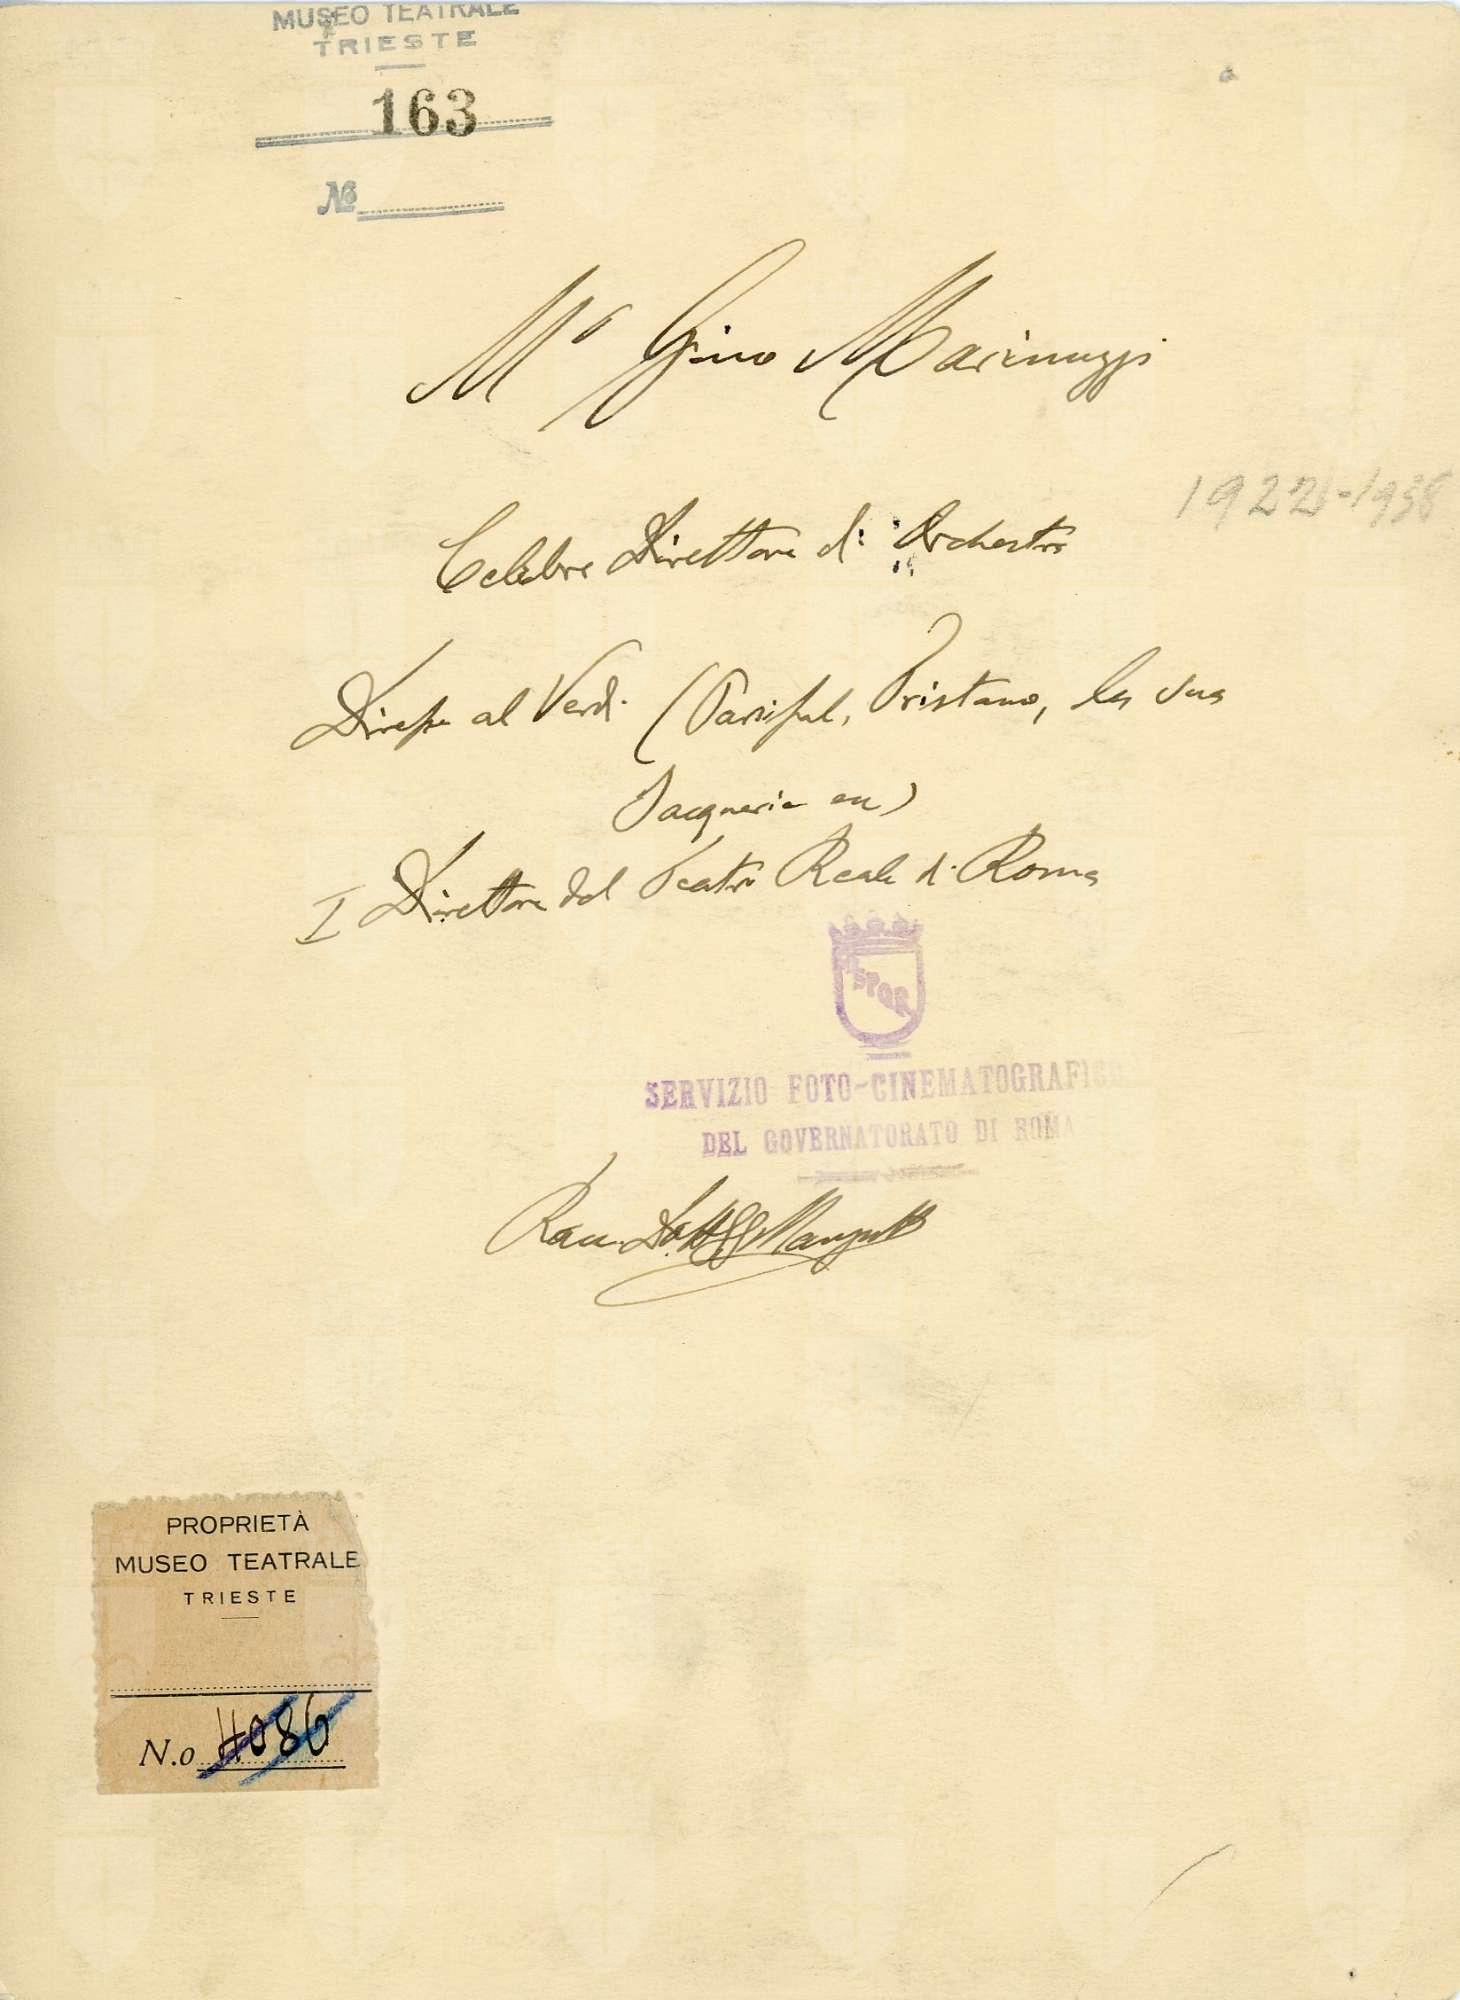 MUSEO TEATRALE
TRIESTE
163
No
Mo Gino Marinuzzi
1922-1938
Celebre Direttore di Orchestra
Diresse al Verdi (Parsifal, Tristano, la sua
Jacquerie ecc)
I Direttore del Teatro Reale di Roma
SPQR
SERVIZIO FOTO-CINEMATOGRAFICO
DEL GOVERNATORATO DI ROMA
Racc. Dott
PROPRIETÀ
MUSEO TEATRALE
TRIESTE
N.o 4086